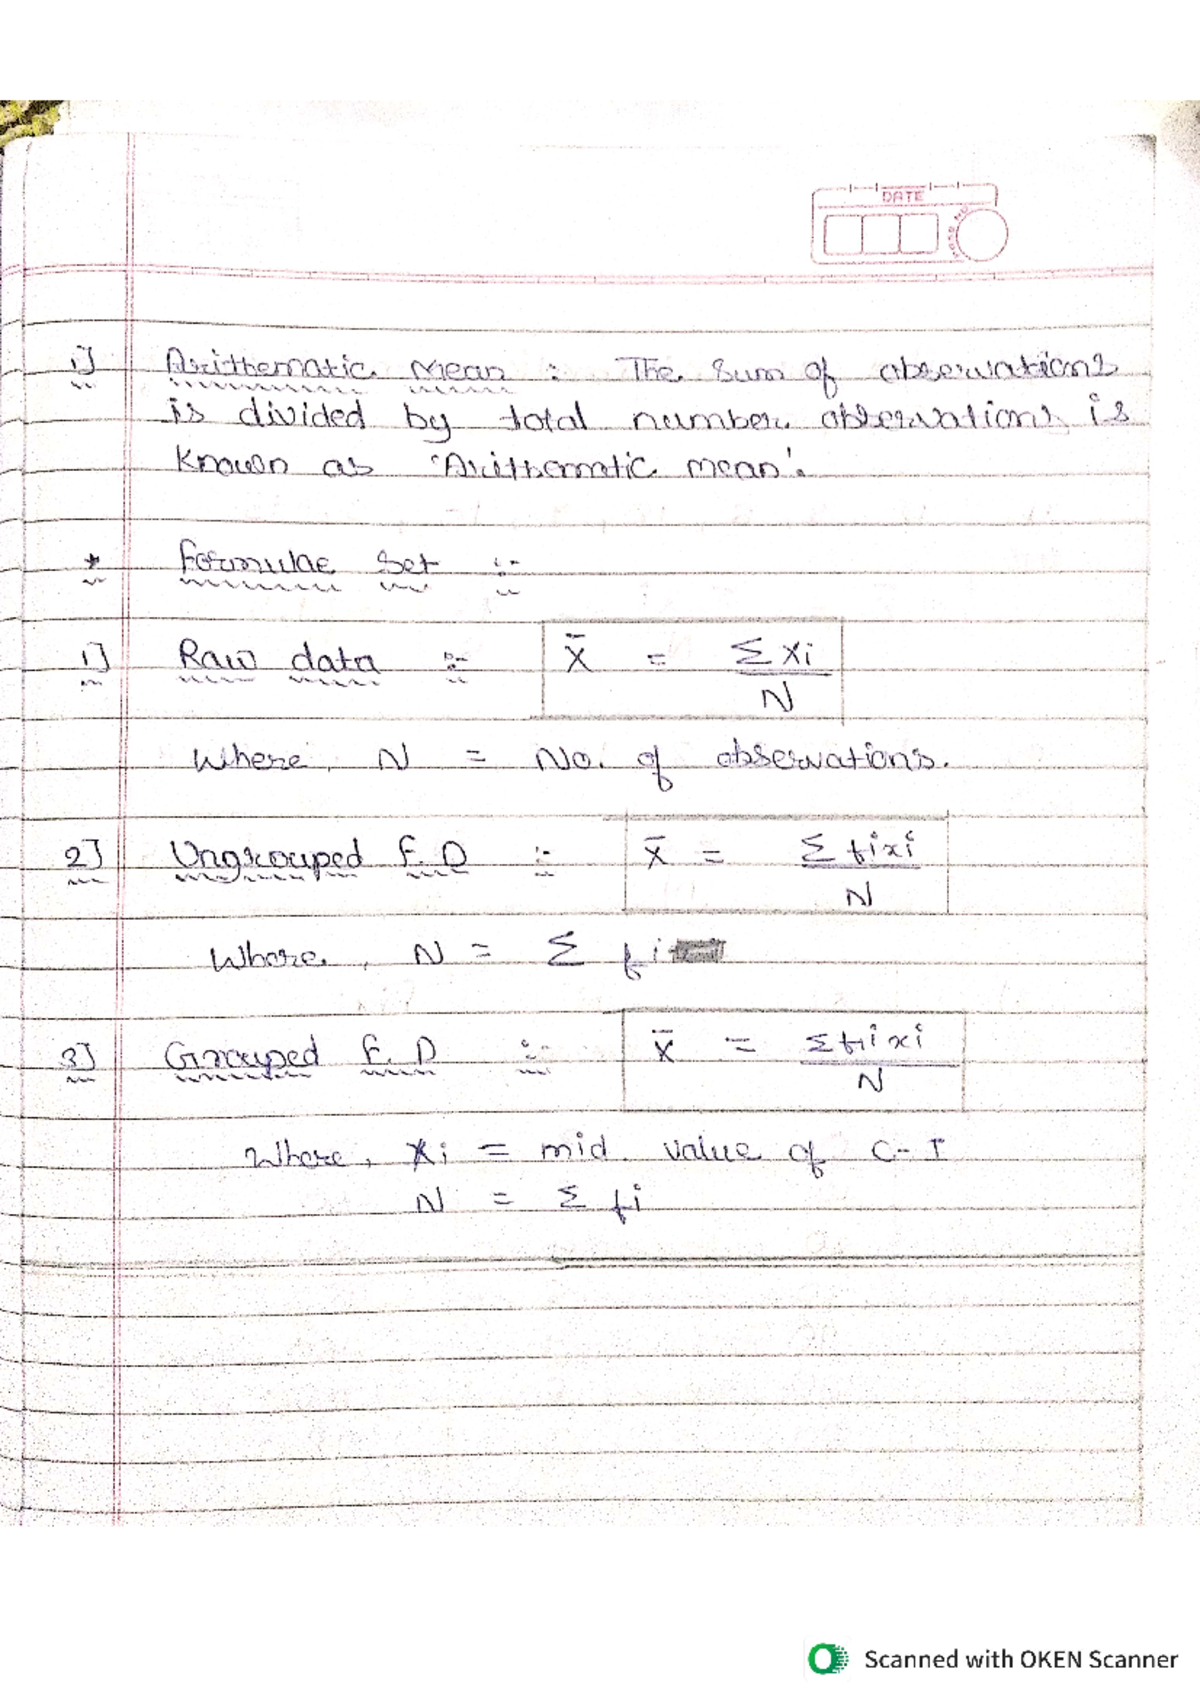 DATE
1] Arithematic Mean : The Sum of observations
is divided by total number observations is
known as 'Arithematic mean'.
* Formulae Set :-
1] Raw data :- X̄ = Σxi / N
Where, N = No. of observations.
2] Ungrouped F.D :- x̄ = Σfixi / N
Where, N = Σfi
3] Grouped F.D :- x̄ = Σfixi / N
Where, xi = mid. value of C-I
N = Σfi
Scanned with OKEN Scanner